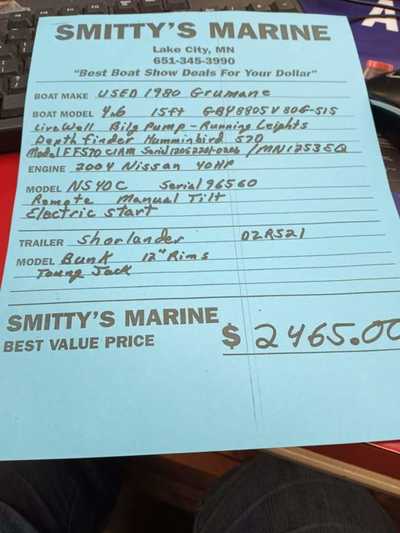 SMITTY'S MARINE
Lake City, MN
651-345-3990
"Best Boat Show Deals For Your Dollar"
BOAT MAKE USED 1980 Grumane
BOAT MODEL 15ft
LiveWell Bilg Pump - Running Leights
Depth finder Humminbird 570
ENGINE 2004 Nissan 40HP
MODEL NS40C Serial 96560
Remote Manual Tilt
Electric Start
TRAILER Shorlander DZR521
MODEL Bunk 12" Rims
Toung Jack
SMITTY'S MARINE
BEST VALUE PRICE $2465.00